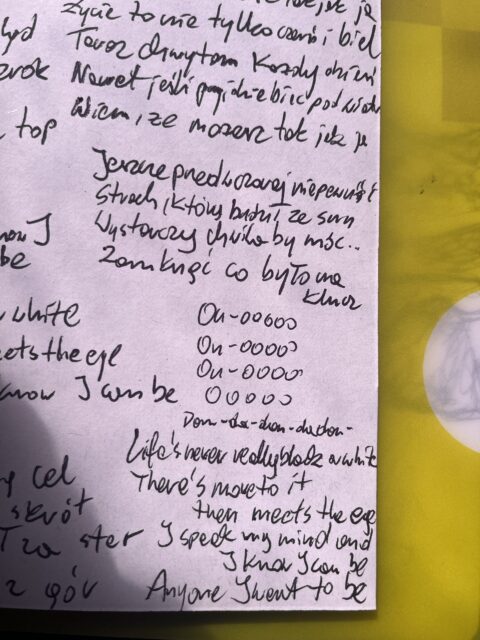 tak jak ja
Życie to nie tylko czerń i biel
Teraz chwytam każdy dzień
Nawet jeśli biec pod wiatr
Wiem, że możesz tak jak ja
top
Jeszcze przedwczoraj niepewność
Strach, który budził ze snu
now I Wystarczy chwila by móc..
be Zamknąć co było na
klucz
white Ou-ooooo
eets the eye Ou-oooo
Ou-oooo
know I can be Ooooo
Life's never really black n white
cel There's more to it
skrót then meets the eye
I za ster I speak my mind and
I know I can be
z gór Anyone I want to be